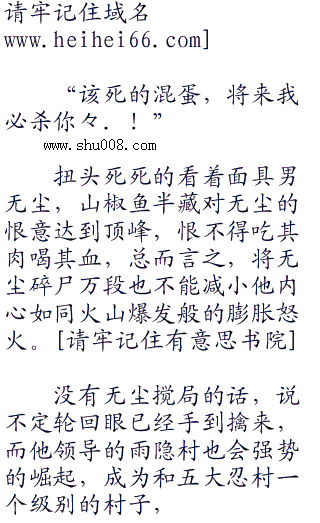 请牢记住域名
www.heihei66.com]
“该死的混蛋，将来我
必杀你々．！”
www.shu008.com
扭头死死的看着面具男
无尘，山椒鱼半藏对无尘的
恨意达到顶峰，恨不得吃其
肉喝其血，总而言之，将无
尘碎尸万段也不能减小他内
心如同火山爆发般的膨胀怒
火。[请牢记住有意思书院]
没有无尘搅局的话，说
不定轮回眼已经手到擒来，
而他领导的雨隐村也会强势
的崛起，成为和五大忍村一
个级别的村子，